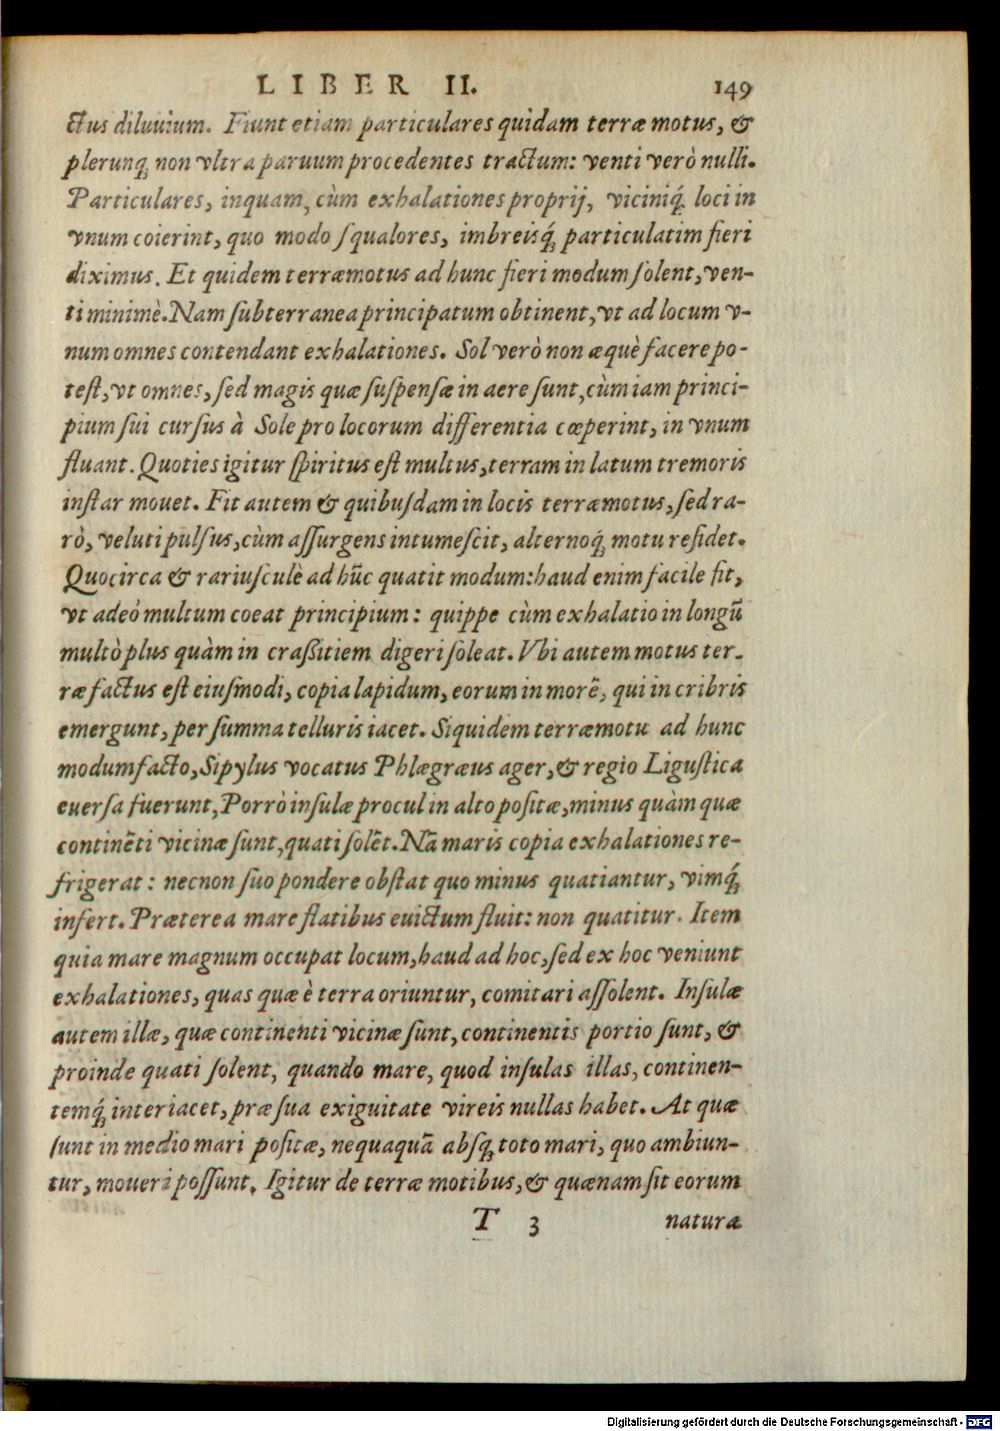 LIBER II. 149
ctus diluuium. Fiunt etiam particulares quidam terræ motus, &
plerunq́; non vltra paruum procedentes tractum: venti verò nulli.
Particulares, inquam, cùm exhalationes proprij, viciniq́; loci in
vnum coierint, quo modo ſqualores, imbreisq́; particulatim fieri
diximus. Et quidem terræmotus ad hunc fieri modum ſolent, ven-
ti minimè. Nam ſubterranea principatum obtinent, vt ad locum v-
num omnes contendant exhalationes. Sol verò non æquè facere po-
teſt, vt omnes, ſed magis quæ ſuſpenſæ in aere ſunt, cùm iam princi-
pium ſui curſus à Sole pro locorum differentia cœperint, in vnum
fluant. Quoties igitur ſpiritus eſt multus, terram in latum tremoris
inſtar mouet. Fit autem & quibuſdam in locis terræmotus, ſed ra-
rò, veluti pulſus, cùm aſſurgens intumeſcit, alternoq́; motu reſidet.
Quocirca & rariuſculè ad hūc quatit modum: haud enim facile fit,
vt adeò multum coeat principium: quippe cùm exhalatio in longū
multò plus quàm in craßitiem digeri ſoleat. Vbi autem motus ter-
ræ factus eſt eiuſmodi, copia lapidum, eorum in morē, qui in cribris
emergunt, per ſumma telluris iacet. Siquidem terræmotu ad hunc
modum facto, Sipylus vocatus Phlægræus ager, & regio Liguſtica
euerſa fuerunt, Porrò inſulæ procul in alto poſitæ, minus quàm quæ
continēti vicinæ ſunt, quati ſolēt. Nā maris copia exhalationes re-
frigerat: necnon ſuo pondere obſtat quo minus quatiantur, vimq́;
infert. Præterea mare flatibus euictum fluit: non quatitur. Item
quia mare magnum occupat locum, haud ad hoc, ſed ex hoc veniunt
exhalationes, quas quæ è terra oriuntur, comitari aſſolent. Inſulæ
autem illæ, quæ continenti vicinæ ſunt, continentis portio ſunt, &
proinde quati ſolent, quando mare, quod inſulas illas, continen-
temq́; interiacet, præ ſua exiguitate vireis nullas habet. At quæ
ſunt in medio mari poſitæ, nequaquā abſq́; toto mari, quo ambiun-
tur, moueri poſſunt. Igitur de terræ motibus, & quænam ſit eorum
T 3 naturæ
Digitalisierung gefördert durch die Deutsche Forschungsgemeinschaft - DFG